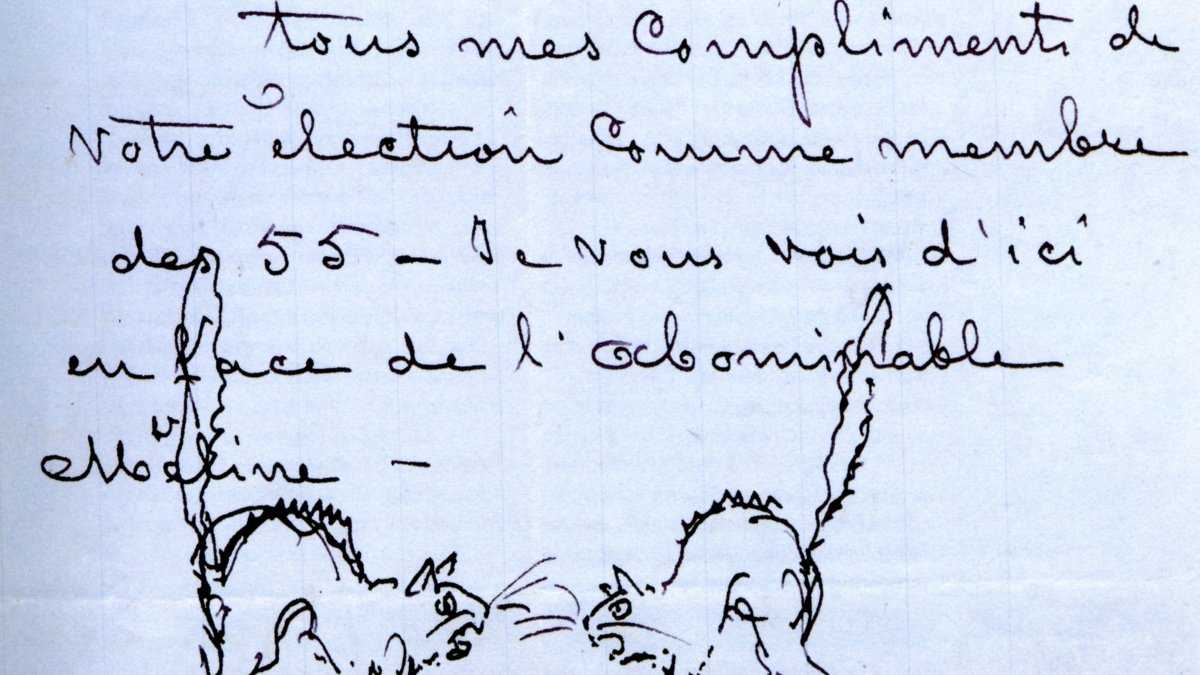 tous mes Compliments de
Votre élection Comme membre
des 55 - Je vous vois d'ici
en face de l'abominable
Méline -